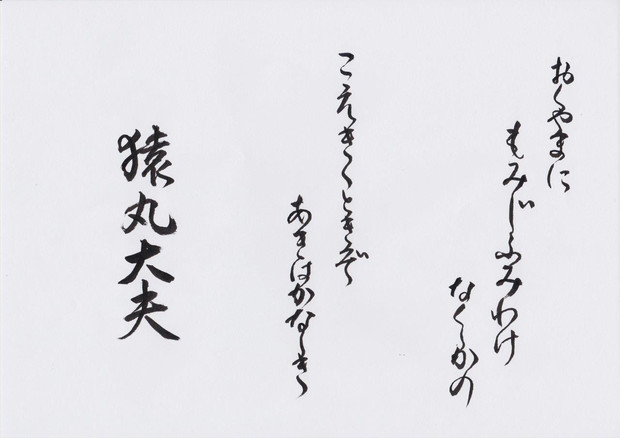 おくやまに
もみじふみわけ
なくしかの
こえきくときぞ
あきはかなしき
猿丸大夫